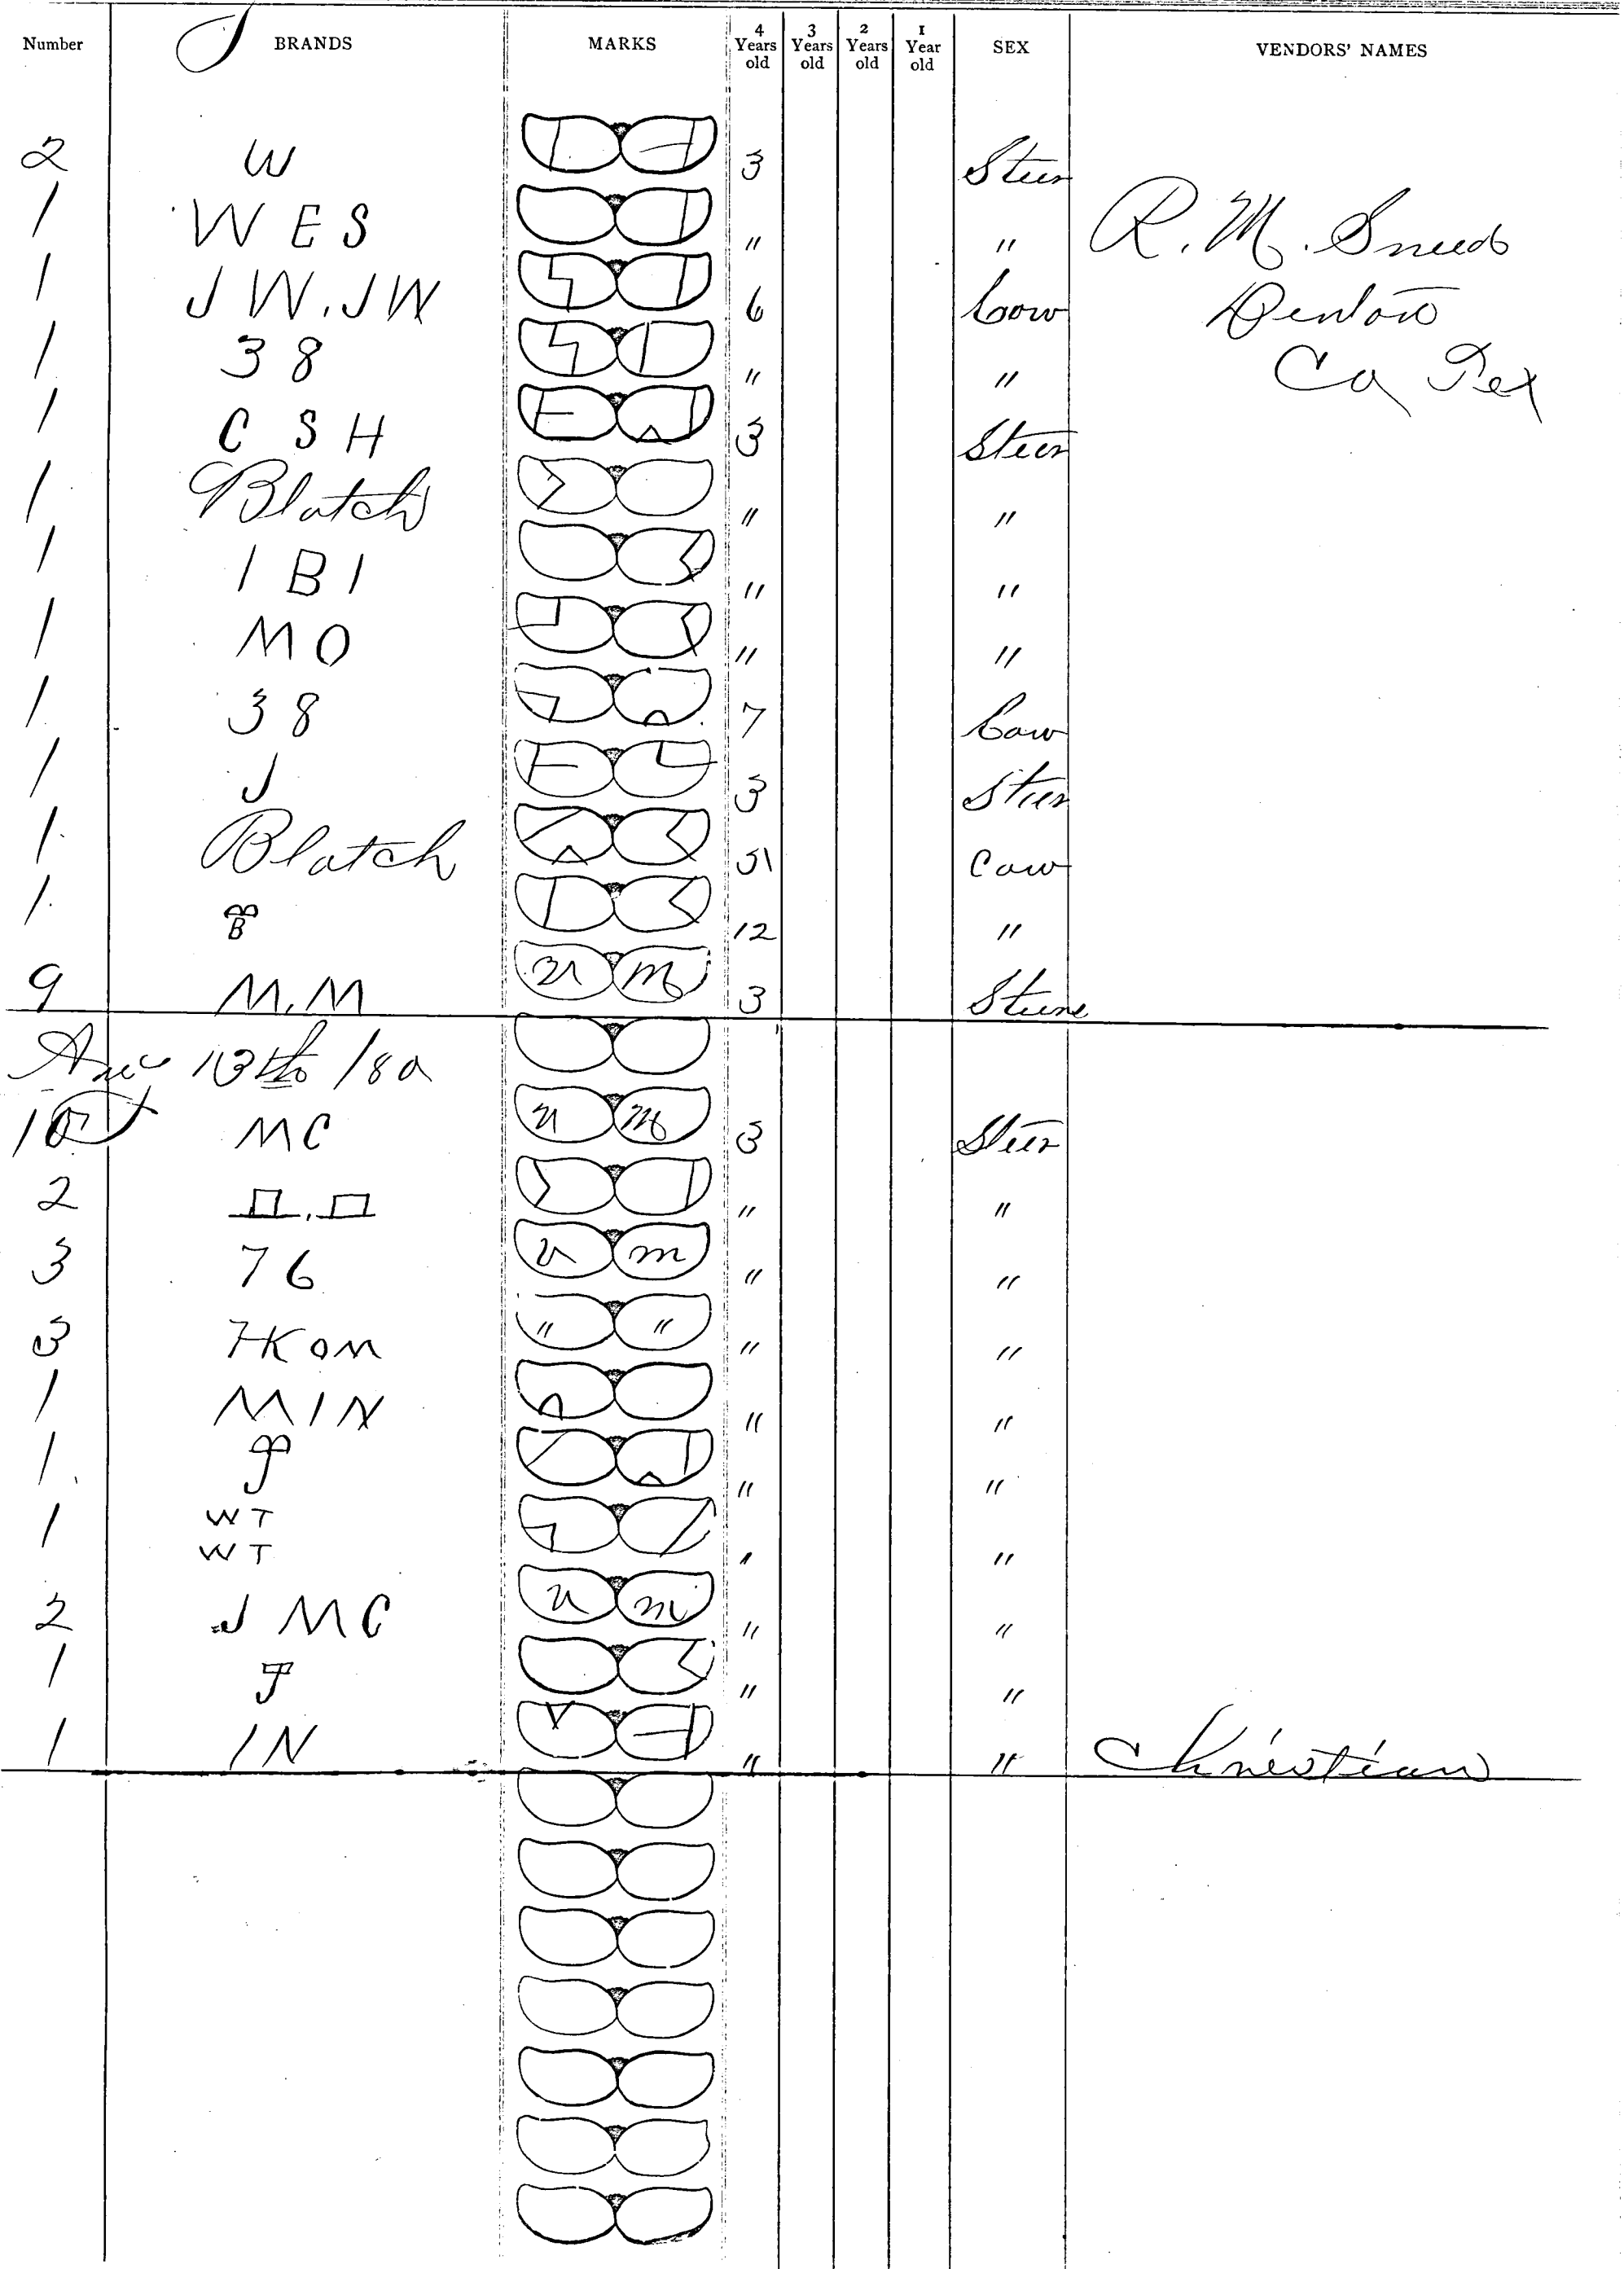 Number BRANDS MARKS 4 Years old 3 Years old 2 Years old 1 Year old SEX VENDORS' NAMES
2 W 3 Steer
1 WES " " R. M. Sneed
1 JW.JW 6 Cow Denton
1 38 " " Co Tex
1 CSH 3 Steer
1 Blatch " "
1 IBI " "
1 MO " "
1 38 7 Cow
1 J 3 Steer
1 Blatch Cow
1 B 12 "
9 M.M M 3 Steers
13th /80
10 MC M 3 Steer
2 " "
3 76 m " "
3 7K OM " " " "
1 MIN " "
1 J " "
1 WT " "
WT
2 JMC m " "
1 J " "
1 IN " " Christian